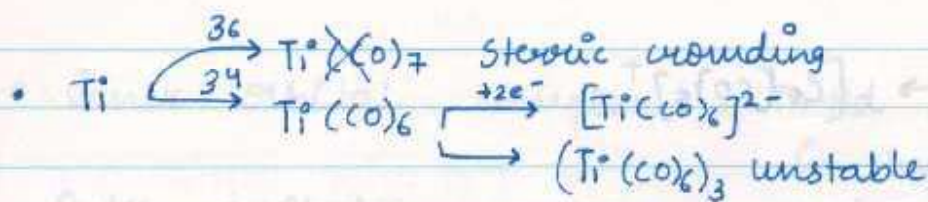 36 Ti(CO)7 Steric crowding
• Ti 34 Ti(CO)6 +2e- [Ti(CO)6]2-
(Ti(CO)6)3 unstable